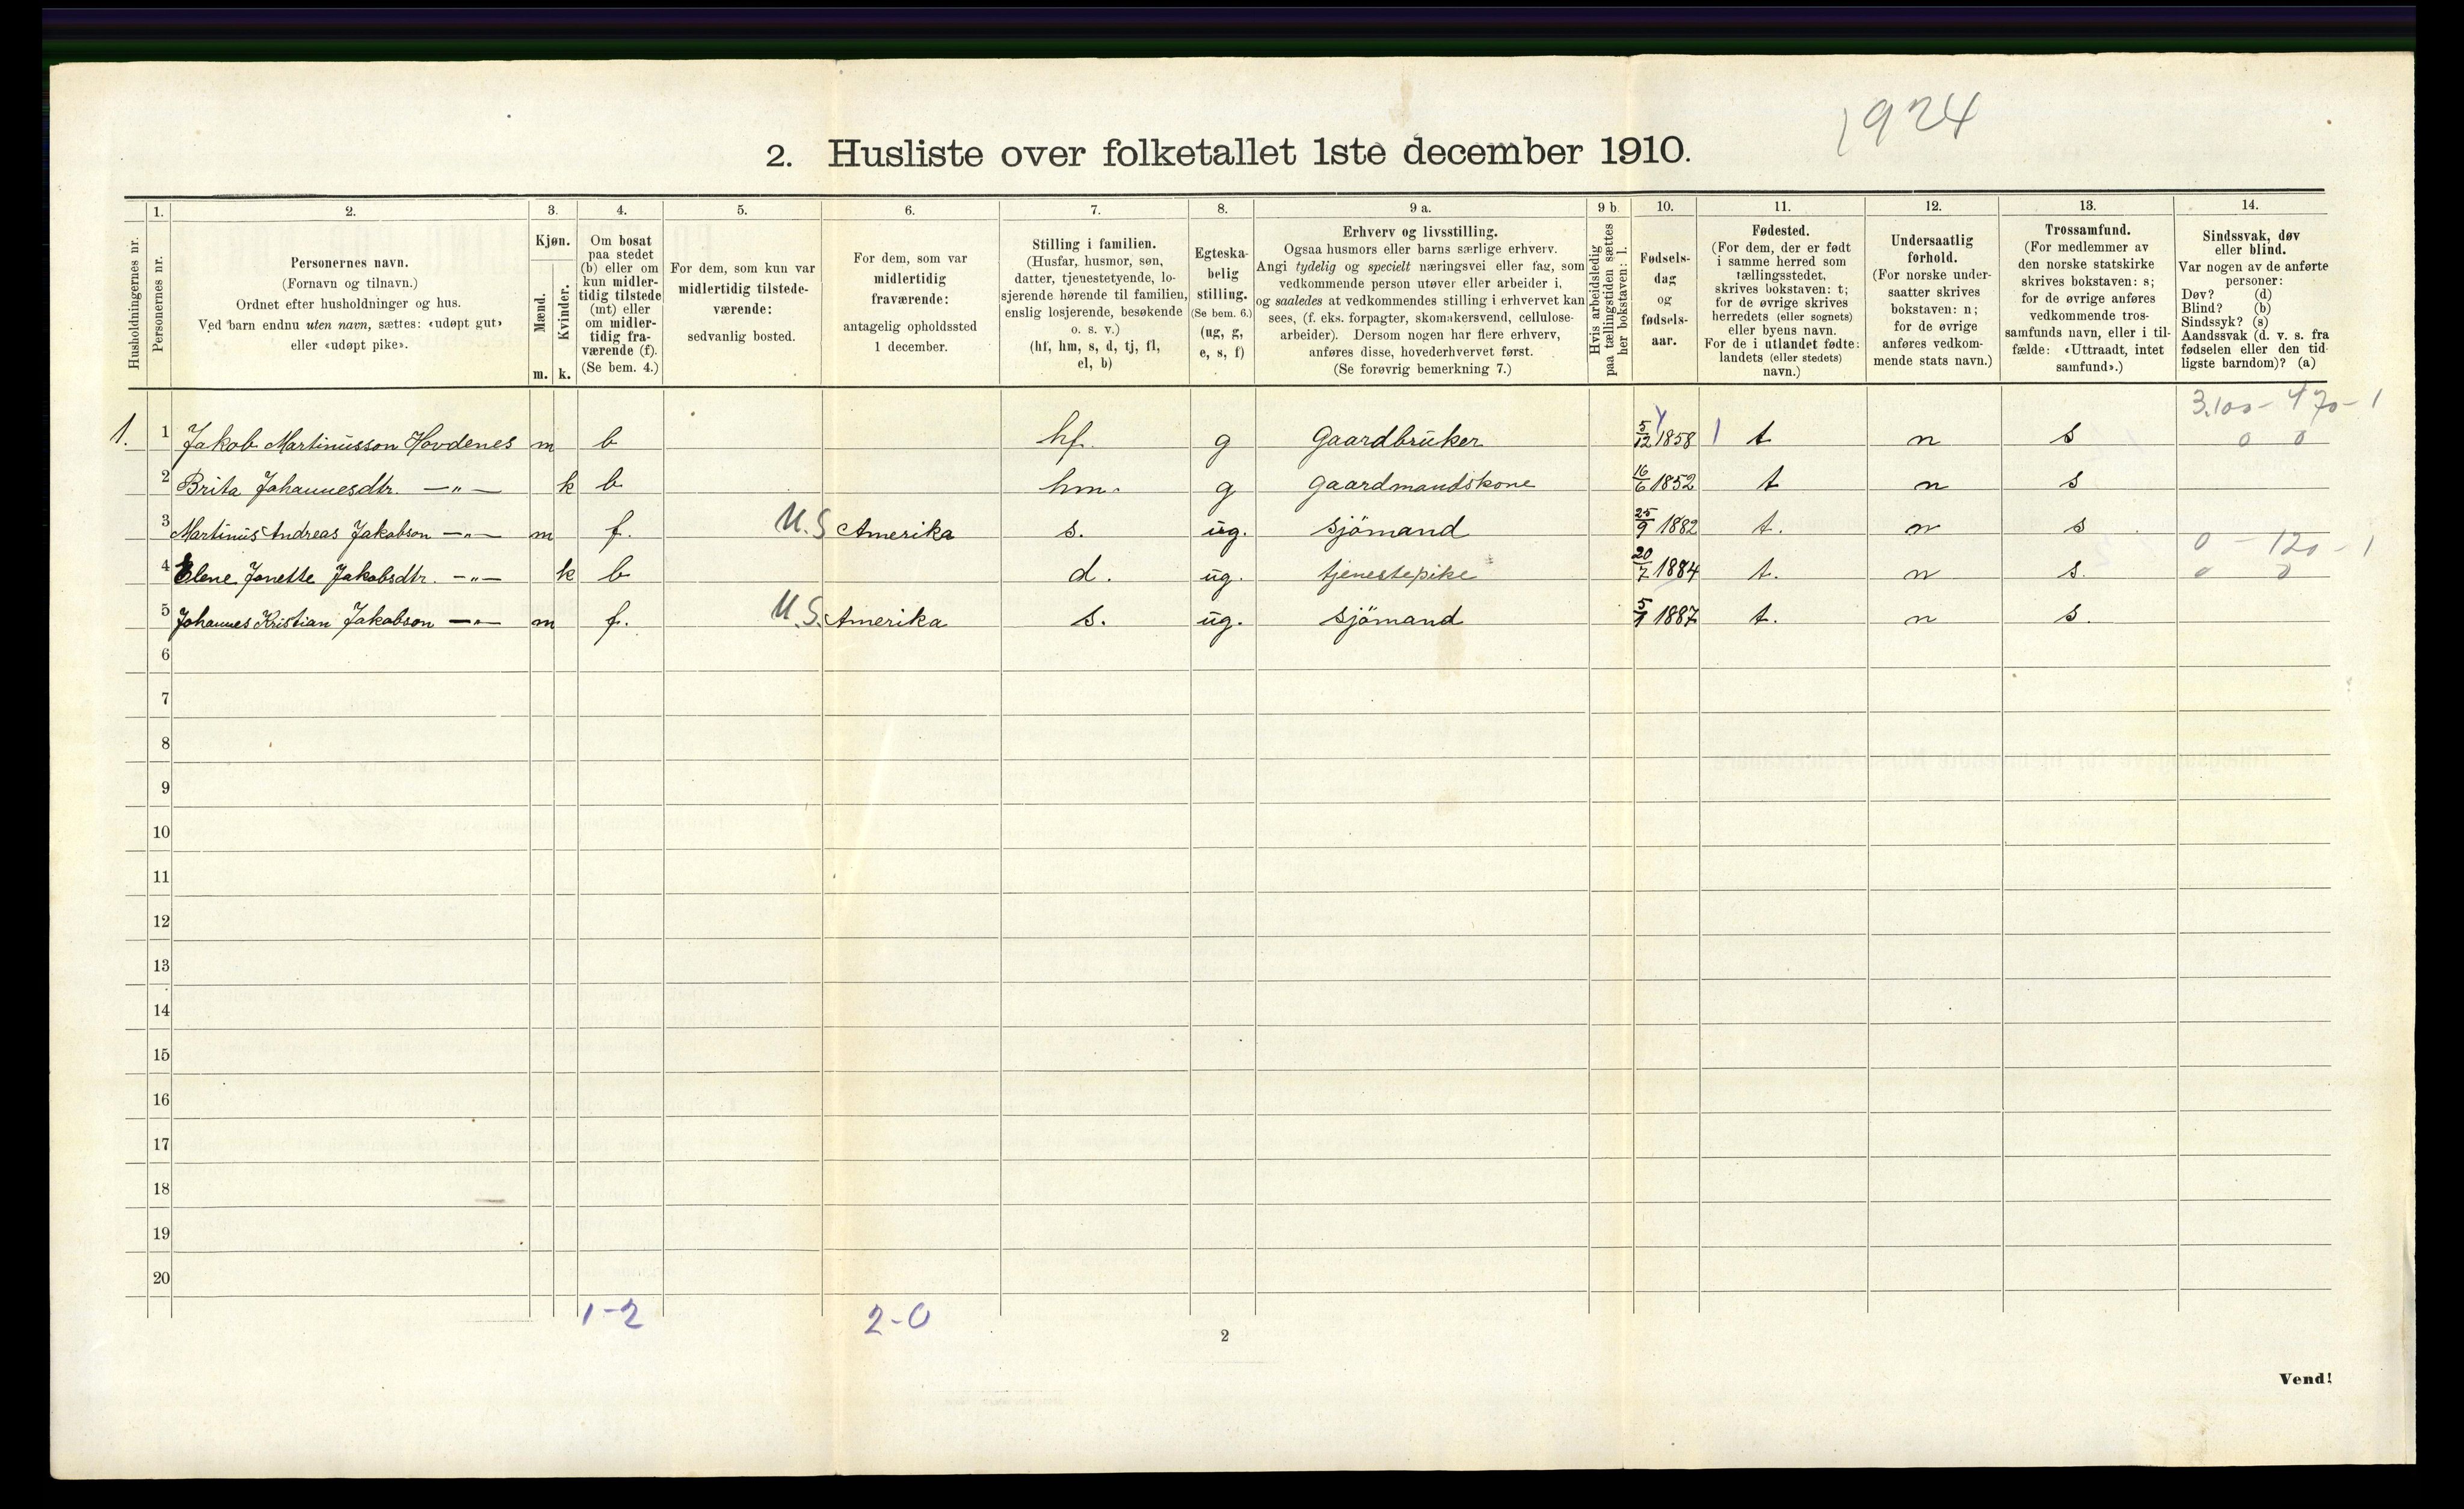 1924
2. Husliste over folketallet 1ste december 1910.
1. 2. 3. 4. 5. 6. 7. 8. 9 a. 9 b. 10. 11. 12. 13. 14.
Husholdningernes nr.
Personernes nr.
Personernes navn.
(Fornavn og tilnavn.)
Ordnet efter husholdninger og hus.
Ved barn endnu uten navn, sættes: «udøpt gut»
eller «udøpt pike».
Kjøn.
Mænd.
Kvinder.
m. k.
Om bosat
paa stedet
(b) eller om
kun midler-
tidig tilstede
(mt) eller
om midler-
tidig fra-
værende (f).
(Se bem. 4.)
For dem, som kun var
midlertidig tilstede-
værende:
sedvanlig bosted.
For dem, som var
midlertidig
fraværende:
antagelig opholdssted
1 december.
Stilling i familien.
(Husfar, husmor, søn,
datter, tjenestetyende, lo-
sjerende hørende til familien,
enslig losjerende, besøkende
o. s. v.)
(hf, hm, s, d, tj, fl,
el, b)
Egteska-
belig
stilling.
(Se bem. 6.)
(ug, g,
e, s, f)
Erhverv og livsstilling.
Ogsaa husmors eller barns særlige erhverv.
Angi tydelig og specielt næringsvei eller fag, som
vedkommende person utøver eller arbeider i,
og saaledes at vedkommendes stilling i erhvervet kan
sees, (f. eks. forpagter, skomakersvend, cellulose-
arbeider). Dersom nogen har flere erhverv,
anføres disse, hovederhvervet først.
(Se forøvrig bemerkning 7.)
Hvis arbeidsledig
paa tællingstiden sættes
her bokstaven: l.
Fødsels-
dag
og
fødsels-
aar.
Fødested.
(For dem, der er født
i samme herred som
tællingsstedet,
skrives bokstaven: t;
for de øvrige skrives
herredets (eller sognets)
eller byens navn.
For de i utlandet fødte:
landets (eller stedets)
navn.)
Undersaatlig
forhold.
(For norske under-
saatter skrives
bokstaven: n;
for de øvrige
anføres vedkom-
mende stats navn.)
Trossamfund.
(For medlemmer av
den norske statskirke
skrives bokstaven: s;
for de øvrige anføres
vedkommende tros-
samfunds navn, eller i til-
fælde: «Uttraadt, intet
samfund».)
Sindssvak, døv
eller blind.
Var nogen av de anførte
personer:
Døv? (d)
Blind? (b)
Sindssyk? (s)
Aandssvak (d. v. s. fra
fødselen eller den tid-
ligste barndom)? (a)
3.100 - 470 - 1
1. 1 Jakob Martinusson Hovdenes m b hf. g Gaardbruker 5/12 1858 1 t n s 0 0
2 Brita Johannesdtr. —"— k b hm. g Gaardmandskone 16/6 1852 t n s
3 Martinus Andreas Jakobson —"— m f. U.S Amerika s. ug. sjömand 25/9 1882 t. n s
0 - 120 - 1
4 Elene Jonette Jakobsdtr. —"— k b d. ug. tjenestepike 20/7 1884 t. n s. 0 0
5 Johannes Kristian Jakobson —"— m f. U.S. Amerika s. ug. sjömand 1887 t. n s.
6
7
8
9
10
11
12
13
14
15
16
17
18
19
20
1-2 2-0
2
Vend!